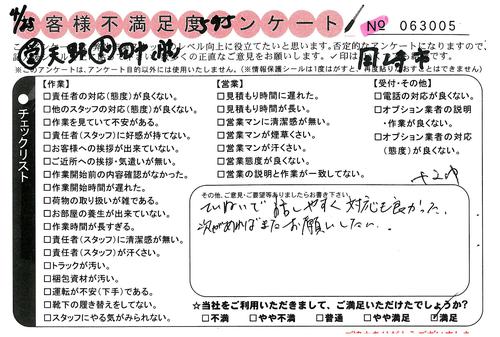 4/25
お客様不満足度アンケート
595
No 063005
天野 田中
レベル向上に役立てたいと思います。否定的なアンケートになりますので、
くの正直なご意見をお願いします。✓印は
※このアンケートは、アンケート目的以外には使用いたしません。
チェックリスト
【作業】
□責任者の対応(態度)が良くない。
□他のスタッフの対応(態度)が良くない。
□作業を見ていて不安がある。
□責任者(スタッフ)に好感が持てない。
□お客様への挨拶が出来ていない。
□ご近所への挨拶・気遣いが無い。
□作業開始前の内容確認がなかった。
□作業開始時間が遅れた。
□荷物の取り扱いが雑である。
□お部屋の養生が出来ていない。
□作業時間が長すぎる。
□責任者(スタッフ)に清潔感が無い。
□責任者(スタッフ)が汗くさい。
□トラックが汚い。
□梱包資材が汚い。
□運転が不安(下手)である。
□靴下の履き替えをしてない。
□スタッフにやる気がみられない。
【営業】
□見積もり時間に遅れた。
□見積もり時間が長い。
□営業マンに清潔感が無い。
□営業マンが煙草くさい。
□営業マンが汗くさい。
□営業態度が良くない。
□営業の説明と作業が一致してない。
【受付・その他】
□電話の対応が良くない。
□オプション業者の説明
・作業が良くない。
□オプション業者の対応
(態度)が良くない。
その他、ご意見・ご要望等ありましたらお書き下さい。
ていねいで話しやすく対応も良かった。
次があればまたお願いしたい。
☆当社をご利用いただきまして、ご満足いただけたでしょうか?
□不満 □やや不満 □普通 □やや満足 ☑満足